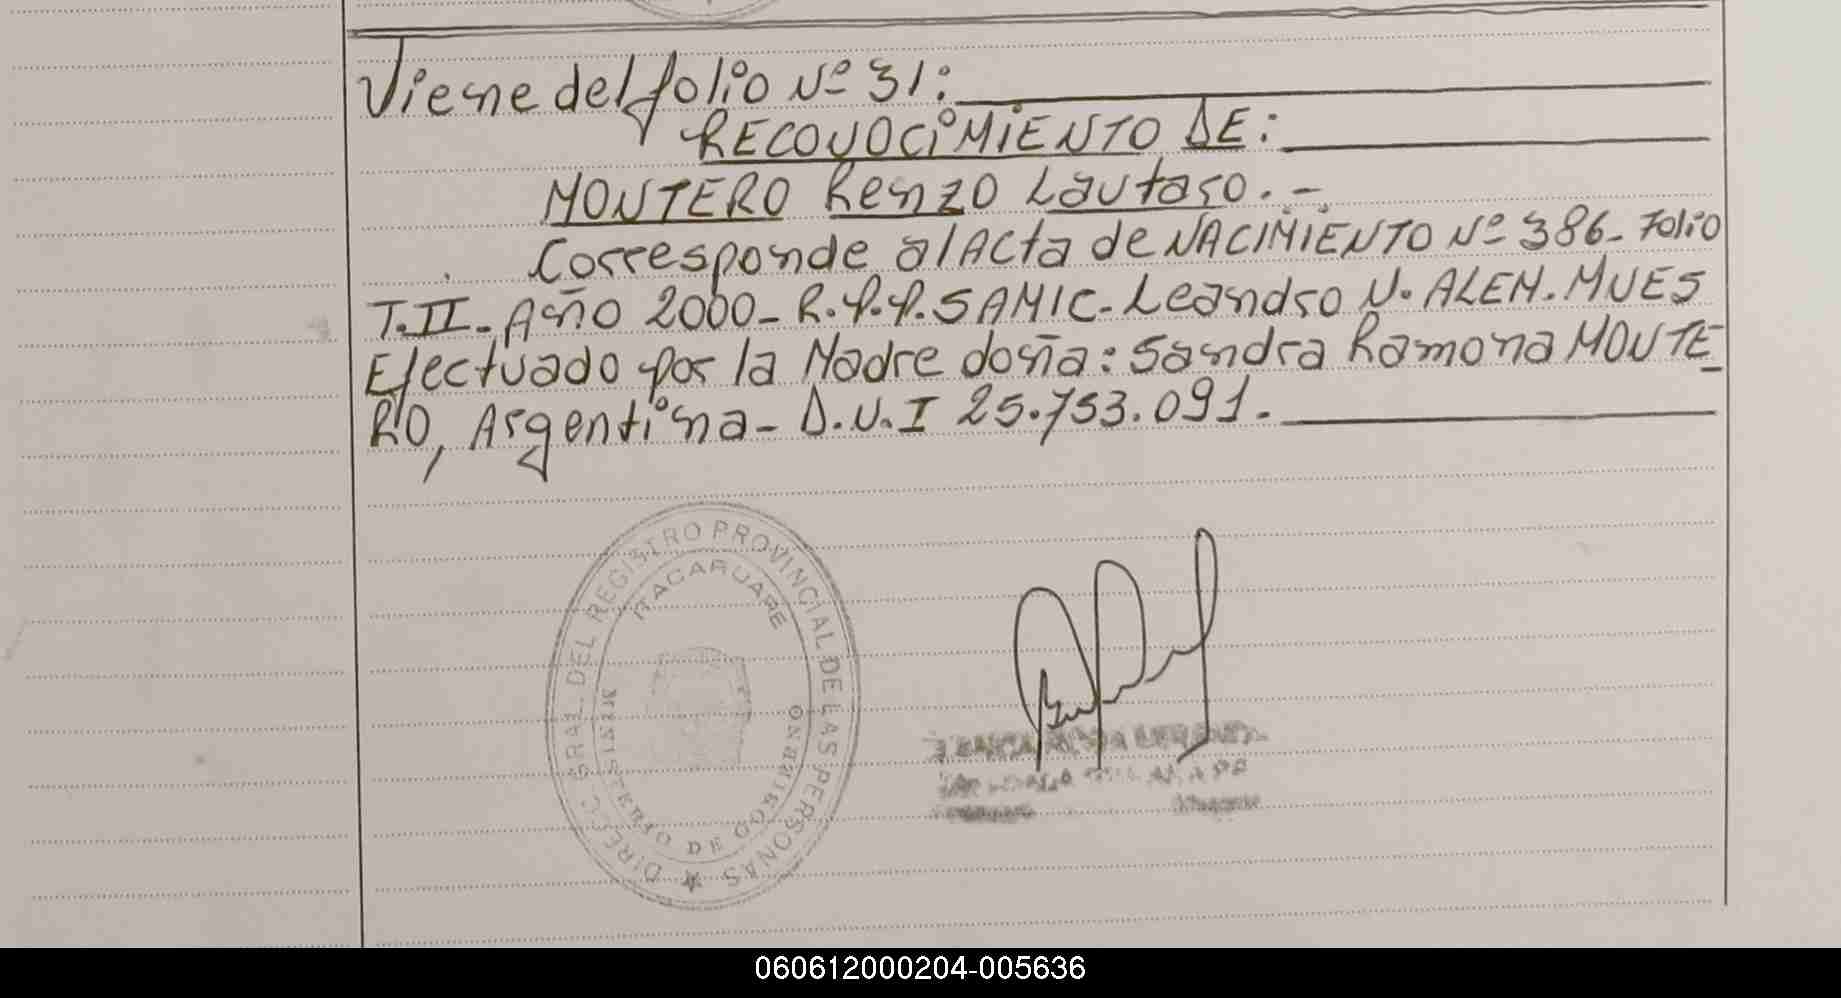 Viene del folio Nº 31:
RECONOCIMIENTO DE:
MONTERO Renzo Lautaro.-
Corresponde al Acta de NACIMIENTO Nº 386- Folio
T.II- Año 2000- R.P.P. SAMIC- Leandro N. ALEM. MNES
Efectuado por la Madre doña: Sandra Ramona MONTE-
RO, Argentina- D.N.I 25.753.091.-
DIREC. GRAL. DEL REGISTRO PROVINCIAL DE LAS PERSONAS
ITACARUARE
MINISTERIO DE GOBIERNO
060612000204-005636